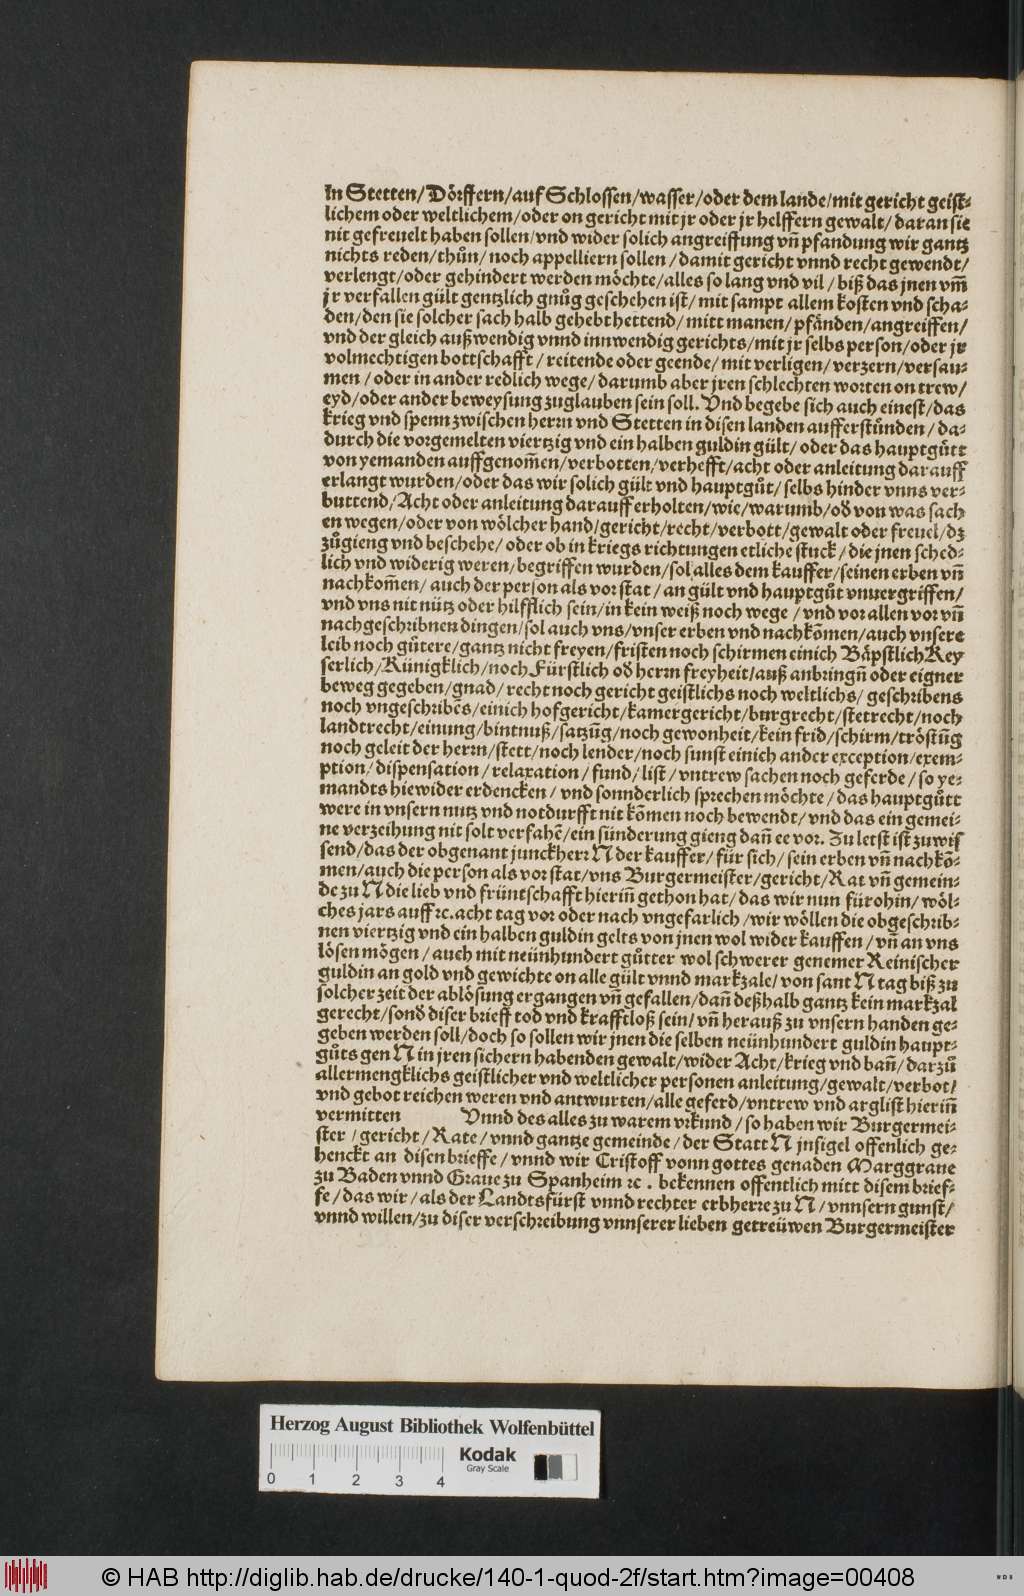 In Stetten/ Dörffern/auf Schlossen/wasser/oder dem lande/mit gericht geist⸗
lichem oder weltlichem/oder on gericht mit jr oder jr helffern gewalt/ daran sie
nit gefreuelt haben sollen/vnd wider solich angreiffung vñ pfandung wir gantz
nichts reden/thůn/ noch appelliern sollen /damit gericht vnnd recht gewendt/
verlengt/oder gehindert werden möchte/alles so lang vnd vil / biß das jnen vm̃
jr verfallen gült gentzlich gnůg geschehen ist/ mit sampt allem kosten vnd scha⸗
den/den sie solcher sach halb gehebt hettend/ mitt manen/ pfänden/angreiffen/
vnd der gleich außwendig vnnd innwendig gerichts/mit jr selbs person/oder jr
volmechtigen bottschafft / reitende oder geende/ mit verligen/ verzern/versau⸗
men / oder in ander redlich wege/ darumb aber jren schlechten worten on trew/
eyd/oder ander beweysung zuglauben sein soll. Vnd begebe sich auch einest/das
krieg vnd spenn zwischen herrn vnd Stetten in disen landen aufferstůnden / da⸗
durch die vorgemelten viertzig vnd ein halben guldin gült/ oder das hauptgůtt
von yemanden auffgenom̃en/verbotten/verhefft/acht oder anleitung darauff
erlangt wurden/oder das wir solich gült vnd hauptgůt/ selbs hinder vnns ver⸗
buttend/Acht oder anleitung darauff erholten/wie/warumb/oď von was sach
en wegen/oder von wölcher hand/gericht/recht/verbott/gewalt oder freuel/dz
zůgieng vnd beschehe/ oder ob in kriegs richtungen etliche stuck/ die jnen sched⸗
lich vnd widerig weren/begriffen wurden/sol alles dem kauffer/seinen erben vñ
nachkom̃en/ auch der person als vor stat / an gült vnd hauptgůt vnuergriffen/
vnd vns nit nütz oder hilfflich sein/in kein weiß noch wege / vnd vor allen vor vñ
nachgeschribnen dingen/sol auch vns/vnser erben vnd nachkõmen/auch vnsere
leib noch gůtere/gantz nicht freyen/fristen noch schirmen einich Bäpstlich Key
serlich/Künigklich/noch Fürstlich oď herrn freyheit/auß anbringñ oder eigner
beweg gegeben/gnad/ recht noch gericht geistlichs noch weltlichs/ geschribens
noch vngeschribẽs/einich hofgericht/kamergericht/burgrecht/stetrecht/noch
landtrecht/einung/bintnuß/satzũg/noch gewonheit/kein frid/schirm/tröstũg
noch geleit der herrn/stett/noch lender/noch sunst einich ander exception/exem⸗
ption/dispensation / relaxation / fund/ list/ vntrew sachen noch geferde/ so ye⸗
mandts hiewider erdencken/ vnd sonnderlich sprechen möchte / das hauptgůtt
were in vnsern nutz vnd notdurfft nit kõmen noch bewendt/ vnd das ein gemei⸗
ne verzeihung nit solt verfahẽ/ein sünderung gieng dañ ee vor. Zu letst ist zuwis
send/das der obgenant junckherr N der kauffer/ für sich/ sein erben vñ nachkõ⸗
men/auch die person als vor stat/vns Burgermeister/gericht/Rat vñ gemein⸗
de zu N die lieb vnd früntschafft hieriñ gethon hat/ das wir nun fürohin/ wöl⸗
ches jars auff ꝛc.acht tag vor oder nach vngefarlich /wir wöllen die obgeschrib⸗
nen viertzig vnd ein halben guldin gelts von jnen wol wider kauffen / vñ an vns
lösen mögen / auch mit neünhundert gůtter wol schwerer genemer Reinischer
guldin an gold vnd gewichte on alle gült vnnd markzale/ von sant N tag biß zu
solcher zeit der ablösung ergangen vñ gefallen/dañ deßhalb gantz kein markzal
gerecht/sonď diser brieff tod vnd krafftloß sein/ vñ herauß zu vnsern handen ge⸗
geben werden soll/doch so sollen wir jnen die selben neünhundert guldin haupt⸗
gůts gen N in jren sichern habenden gewalt/wider Acht/krieg vnd bañ/ darzů
allermengklichs geistlicher vnd weltlicher personen anleitung/gewalt/verbot/
vnd gebot reichen weren vnd antwurten/alle geferd/vntrew vnd arglist hieriñ
vermitten Vnnd des alles zu warem vrkund / so haben wir Burgermei⸗
ster / gericht/ Rate/ vnnd gantze gemeinde/ der Statt N jnsigel offenlich ge⸗
henckt an disen brieffe / vnnd wir Cristoff vonn gottes genaden Marggraue
zu Baden vnnd Graue zu Spanheim ꝛc . bekennen offentlich mitt disem brief⸗
fe / das wir / als der Landtsfürst vnnd rechter erbherre zu N / vnnsern gunst/
vnnd willen/zu diser verschreibung vnnserer lieben getreüwen Burgermeister
Herzog August Bibliothek Wolfenbüttel
Kodak
Gray Scale
0 1 2 3 4
© HAB http://diglib.hab.de/drucke/140-1-quod-2f/start.htm?image=00408